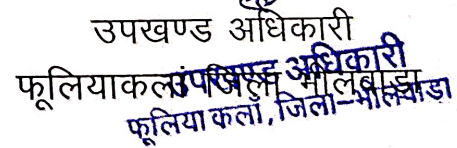 उपखण्ड अधिकारी
फूलियाकलां जिला भीलवाड़ा
उपखण्ड अधिकारी
फूलिया कलाँ, जिला-भीलवाडा